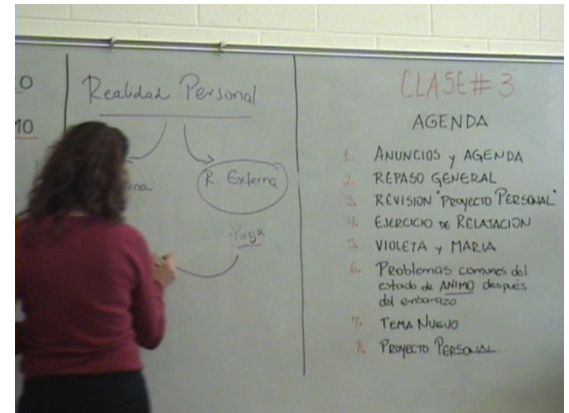 O
10
Realidad Personal
R. Externa
CLASE # 3
AGENDA
1. ANUNCIOS y AGENDA
2. REPASO GENERAL
3. REVISION "PROYECTO PERSONAL"
4. EJERCICIO DE RELAJACIÓN
5. VIOLETA y MARIA
6. Problemas comunes del
estado de ANIMO después
del embarazo
7. TEMA NUEVO
8. PROYECTO PERSONAL